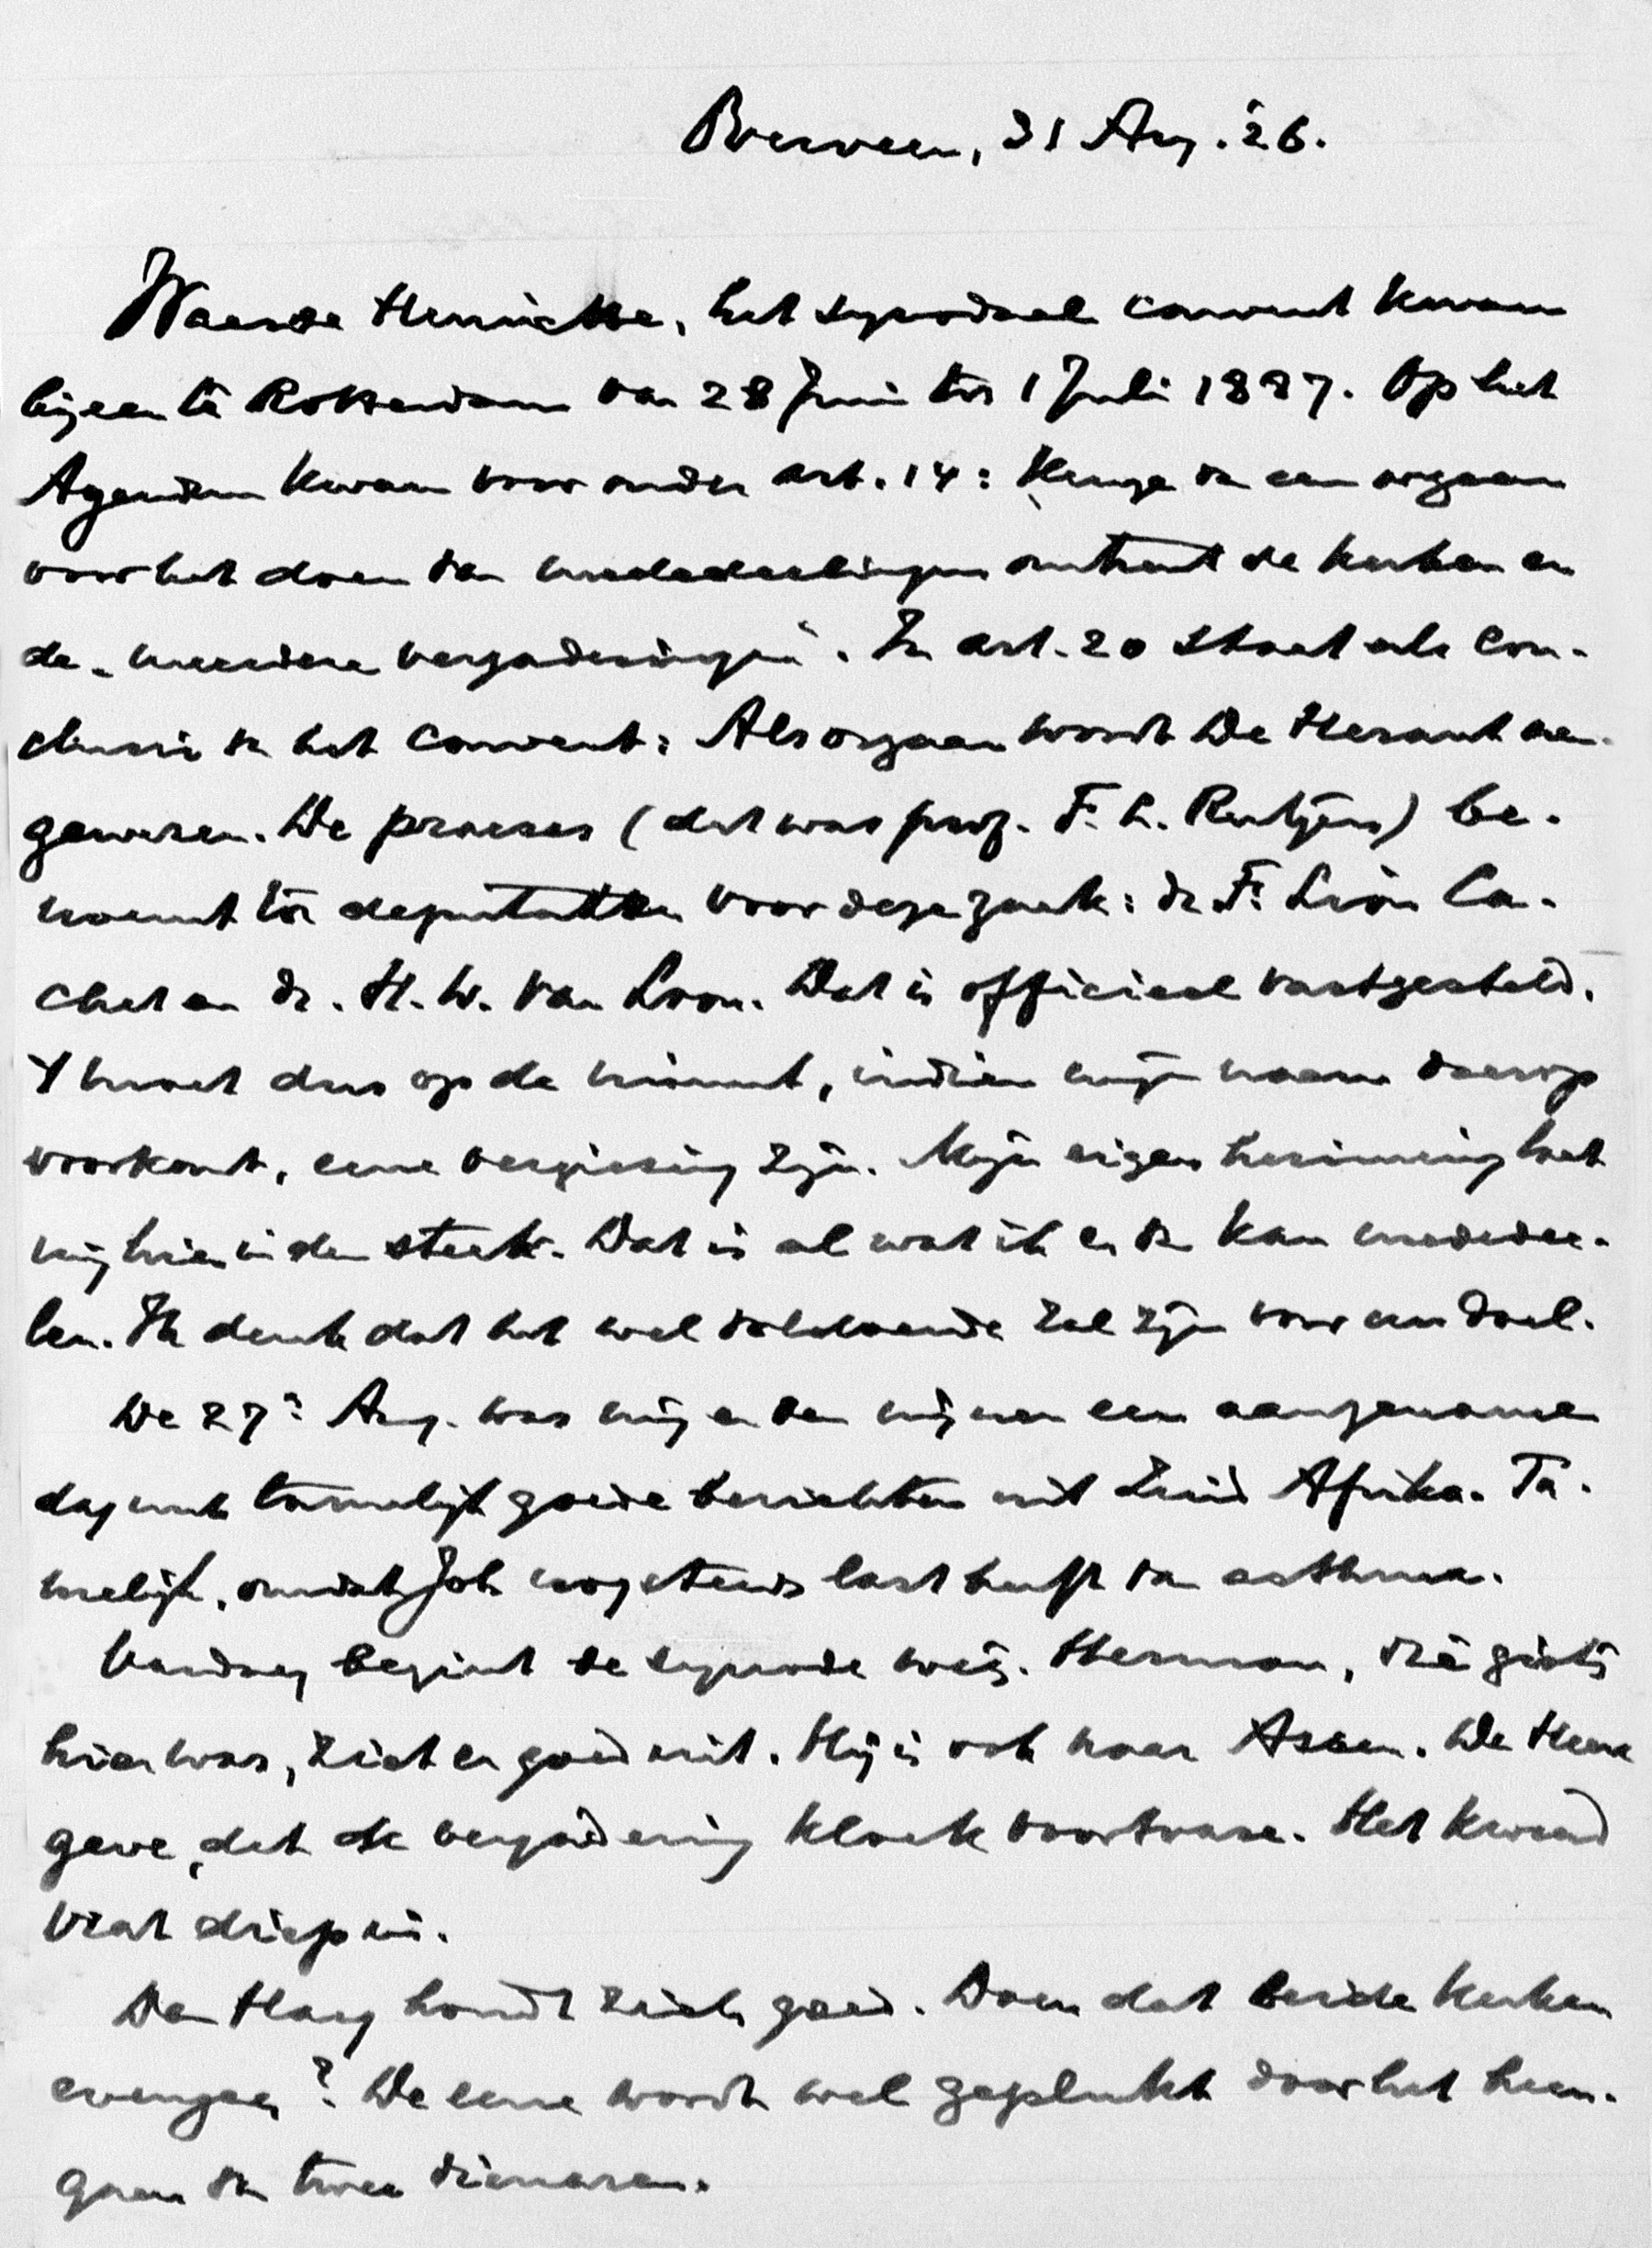 Overveen, 31 Aug. '26.
Waarde Hennichke, het synodaal convent kwam
bijeen te Rotterdam van 28 Juni tot 1 Juli 1887. Op het
Agendum kwam voor onder art. 14: Keuze van een orgaan
voor het doen van mededeelingen omtrent de kerken en
de „meerdere vergaderingen". In art. 20 staat als con-
clusie van het convent: Als orgaan wordt De Heraut aan-
gewezen. De praeses (dat was prof. F. L. Rutgers) be-
noemt tot deputaten voor deze zaak: dr. F. Lion Ca-
chet en dr. H. W. van Loon. Dat is officieel vastgesteld.
't moet dus op de minuut, indien mijn naam daarop
voorkomt, eene vergissing zijn. Mijn eigen herinnering laat
mij hier in den steek. Dat is al wat ik er van kan mededee-
len. Ik denk dat het wel voldoende zal zijn voor uw doel.
De 27e Aug. was mij en den mijnen een aangename
dag met tamelijk goede berichten uit Zuid Afrika. Ta-
melijk, omdat Joh nog steeds last heeft van asthma.
Vandaag begint de synode weer. Herman, die gist.
hier was, ziet er goed uit. Hij is ook naar Assen. De Heere
geve, dat de vergadering kloek voortvare. Het kwaad
vrat diep in.
Den Haag houdt zich goed. Doen dat beide kerken
evenzeer? De eene wordt wel geplukt door het heen-
gaan van twee dienaren.